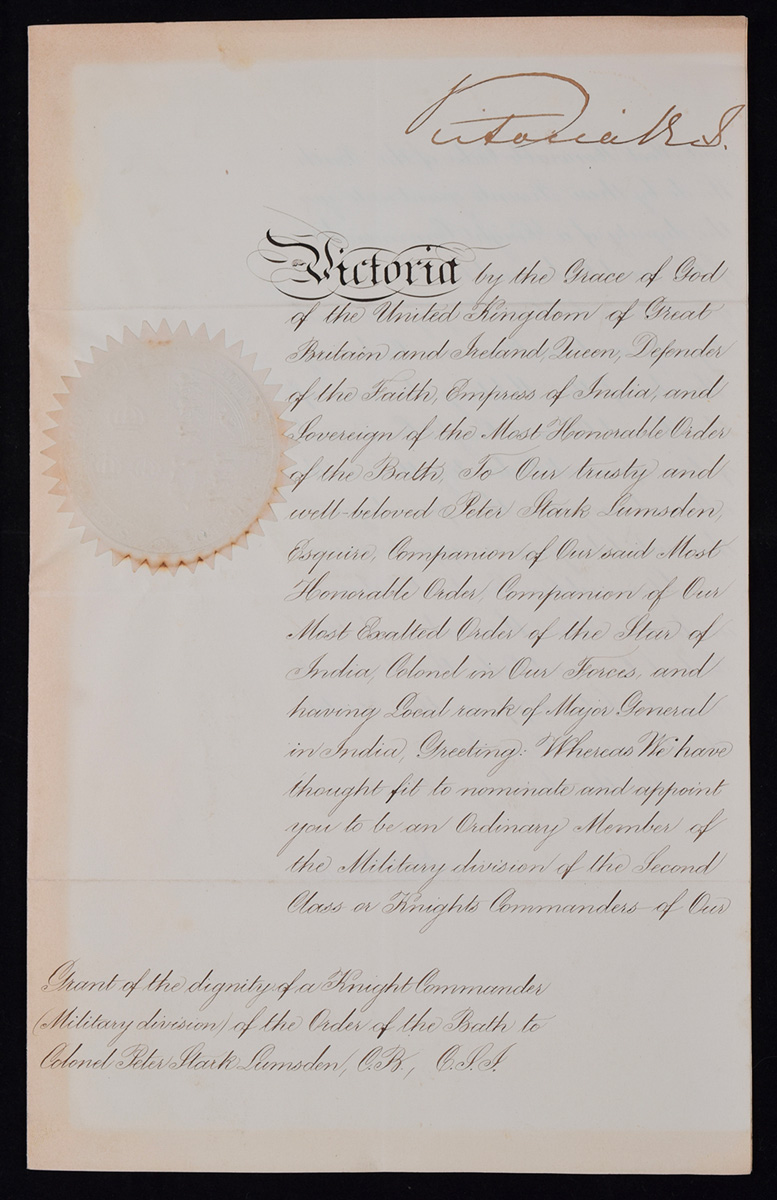 Victoria R I.
Victoria by the Grace of God
of the United Kingdom of Great
Britain and Ireland, Queen, Defender
of the Faith, Empress of India, and
Sovereign of the Most Honorable Order
of the Bath, To Our trusty and
well-beloved Peter Stark Lumsden,
Esquire, Companion of Our said Most
Honorable Order, Companion of Our
Most Exalted Order of the Star of
India, Colonel in Our Forces, and
having Local rank of Major General
in India, Greeting: Whereas We have
thought fit to nominate and appoint
you to be an Ordinary Member of
the Military division of the Second
Class or Knights Commanders of Our
Grant of the dignity of a Knight Commander
(Military division) of the Order of the Bath to
Colonel Peter Stark Lumsden, C.B., C.S.I.